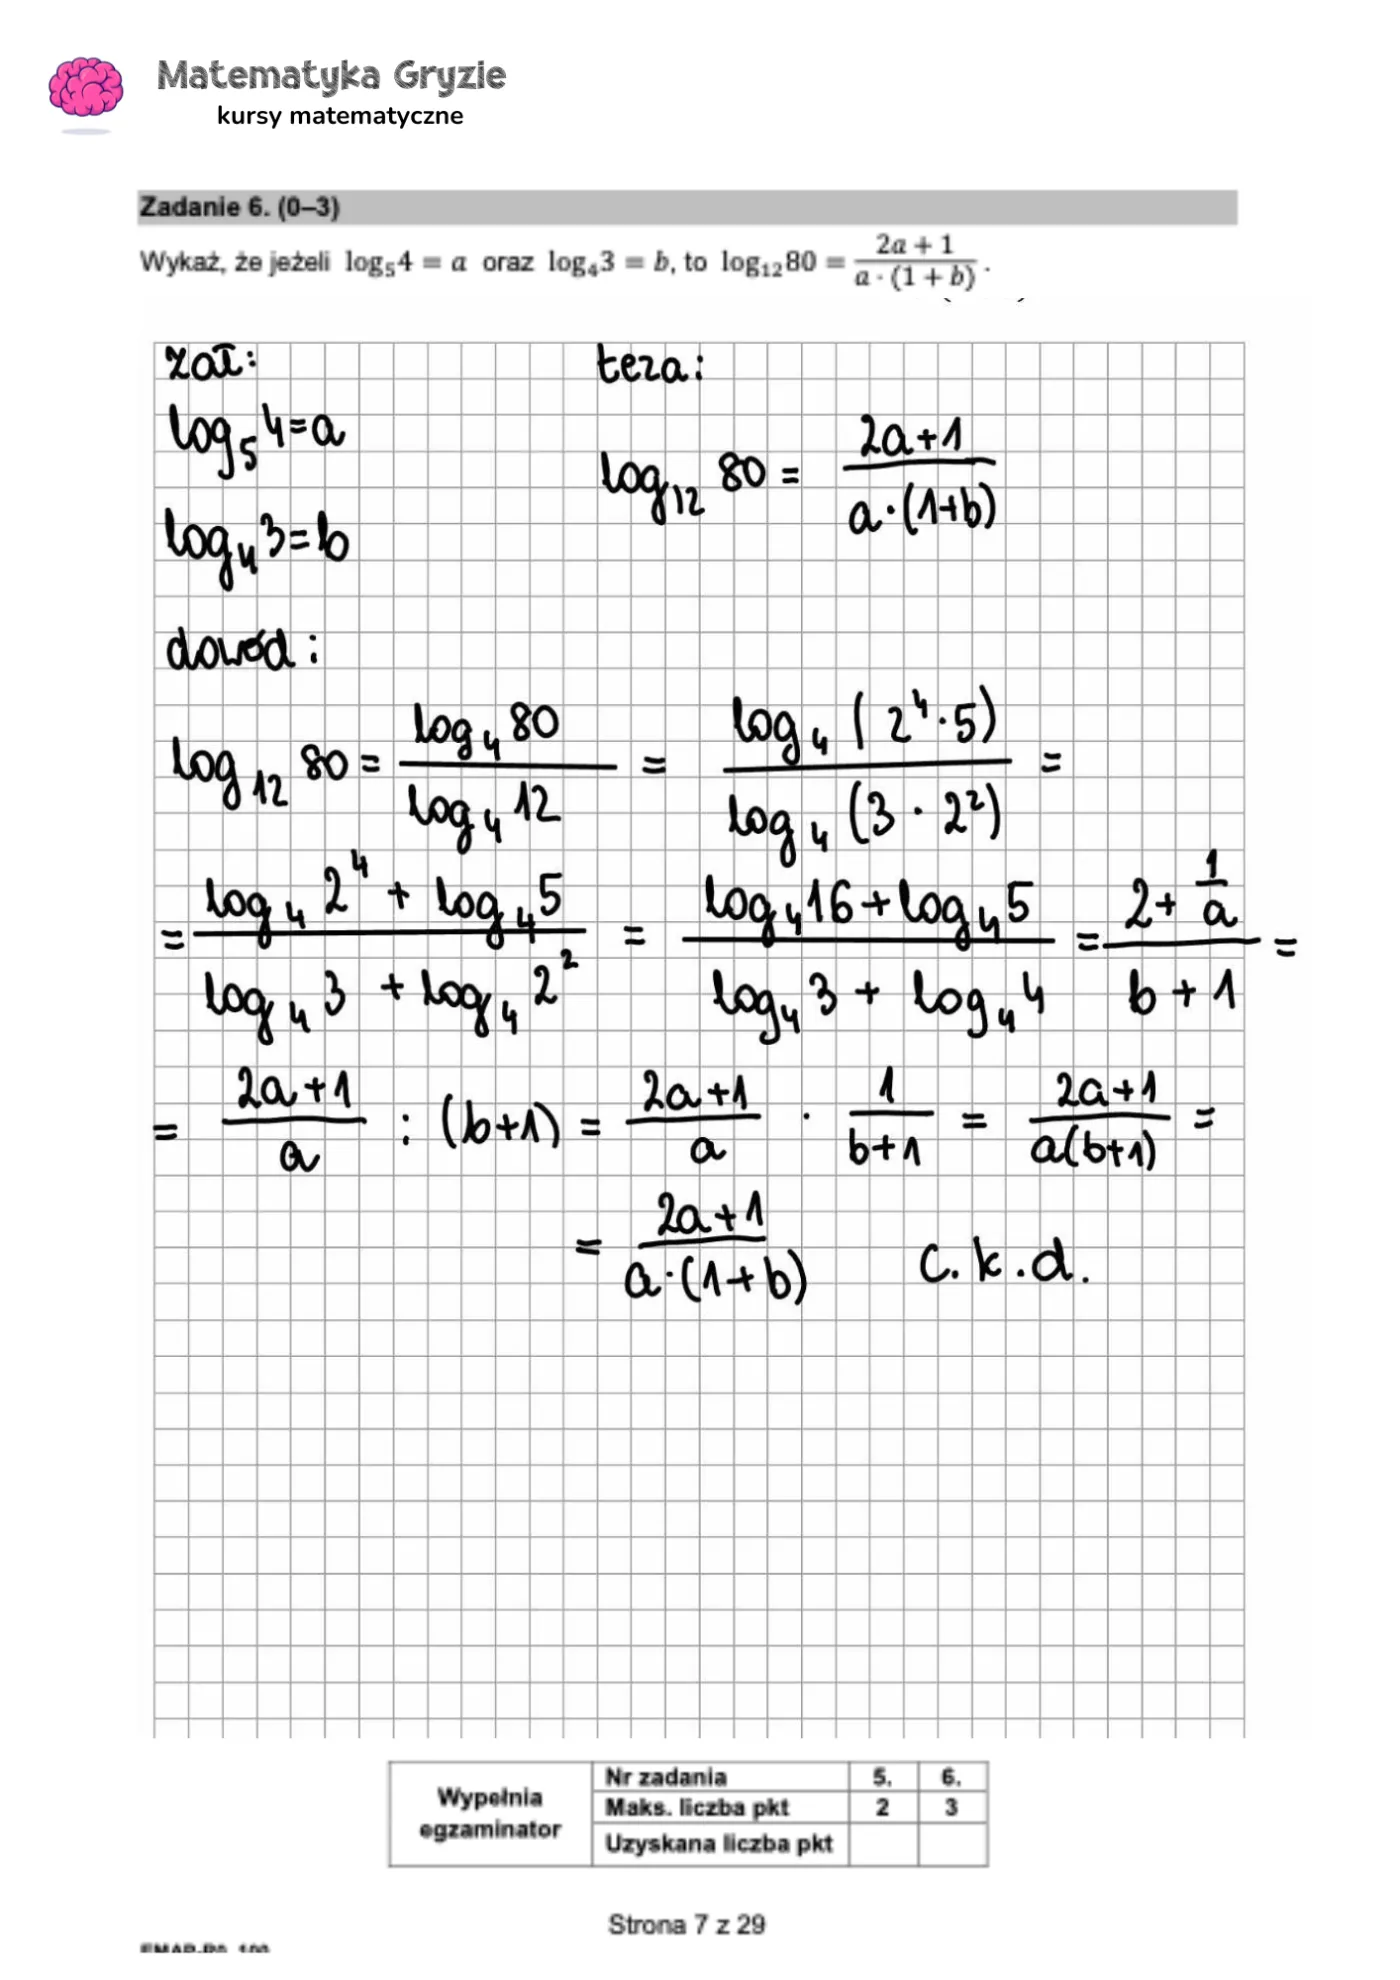 Matematyka Gryzie
kursy matematyczne
Zadanie 6. (0–3)
Wykaż, że jeżeli log₅4 = a oraz log₄3 = b, to log₁₂80 = (2a + 1)/(a · (1 + b)) .
zał: teza:
log₅4=a
log₁₂ 80 = (2a+1)/(a·(1+b))
log₄3=b
dowód:
log₁₂ 80 = (log₄80)/(log₄12) = (log₄(2⁴·5))/(log₄(3·2²)) =
= (log₄2⁴ + log₄5)/(log₄3 + log₄2²) = (log₄16 + log₄5)/(log₄3 + log₄4) = (2 + 1/a)/(b + 1) =
= (2a+1)/a : (b+1) = (2a+1)/a · 1/(b+1) = (2a+1)/(a(b+1)) =
= (2a+1)/(a·(1+b)) c.k.d.
Wypełnia egzaminator
Nr zadania 5. 6.
Maks. liczba pkt 2 3
Uzyskana liczba pkt
Strona 7 z 29